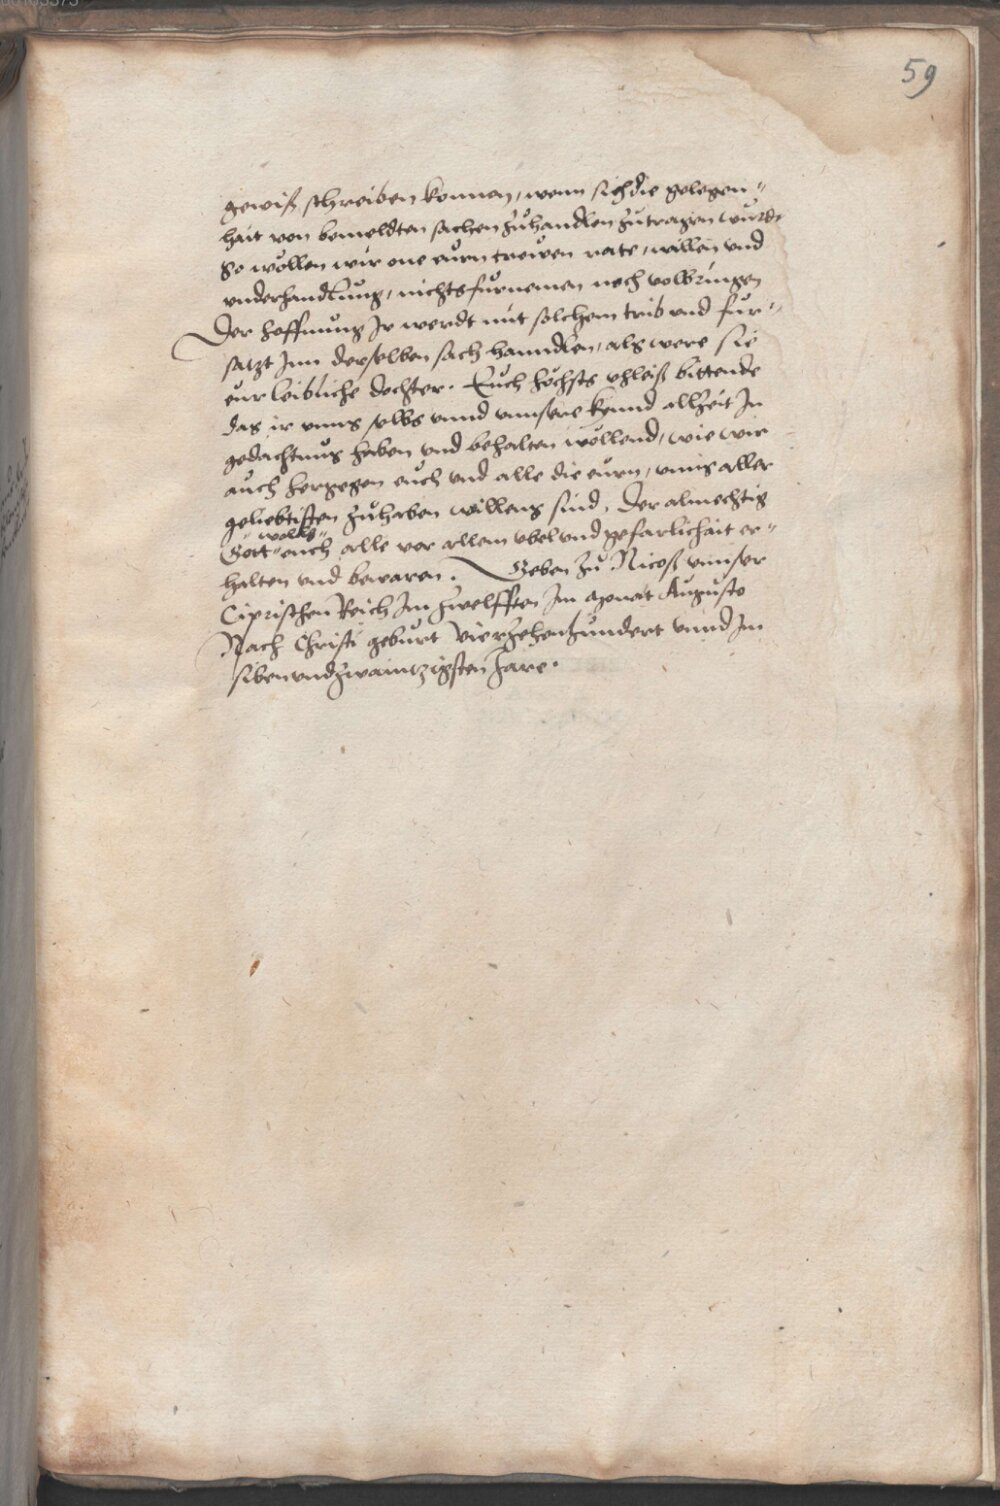 59
gewiß schreiben konnen, wenn sich die gelegen"
hait von bemeldten sachen zuhandlen zutragen wurde
So wöllen wir one eurn trewen rate, willen vnd
vnderhandlung, nichts furnemen noch volbringen
Der hoffnung Ir werdt mit solchem trib vnd fur"
satzt Inn derselben sach hanndlen, als were sie
eur leibliche dochter. Euch höchsts vhleiß bittende
das ir vnns selbs vnnd vnnsere kynnd allzeit In
gedachtnus haben vnd behalten wöllend, wie wir
auch hergegen euch vnd alle die eurn, vnns aller
geliebtisten zuhaben willens sind, Der almechtig
wolle
Gott euch alle vor allem vbel vnd gefarlichait er"
halten vnd bewaren. Geben zu Nicoß vnnser
Ciprischen Reich Im zwelfften Im Monat Augusto
Nach Christi geburt vierzehenhundert vnnd Im
siben vnd zwaintzigsten Jare.